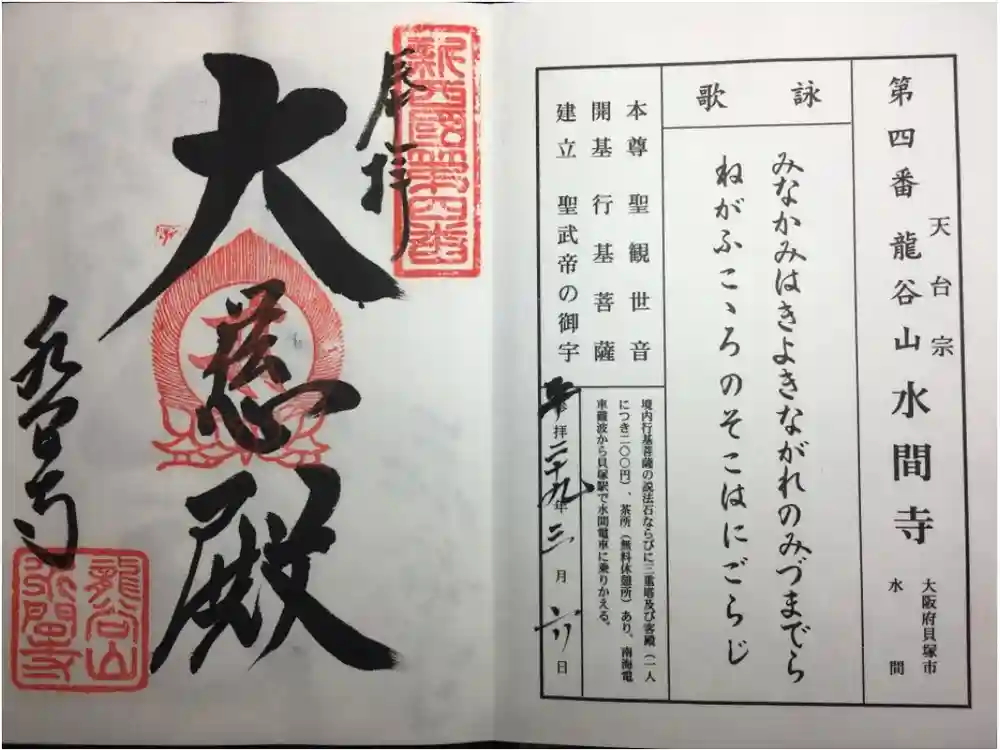 第四番 龍谷山 水間寺
天台宗
大阪府貝塚市
水間
詠歌
みなかみはきよきながれのみづまでら
ねがふこゝろのそこはにごらじ
本尊 聖観世音
開基 行基菩薩
建立 聖武帝の御宇
境内行基菩薩の説法石ならびに三重塔及び客殿（一人
につき二〇〇円）、茶所（無料休憩所）あり。南海電
車難波から貝塚駅で水間電車に乗りかえる。
参拝二十九年三月六日
新西國第四番
拝
大慈殿
水間寺
龍谷山
水間寺